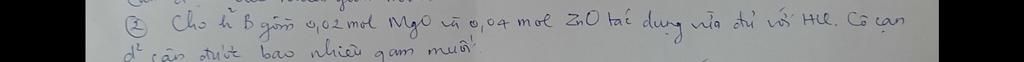 ② Cho h² B gồm 0,02 mol MgO và 0,04 mol ZnO tác dụng vừa đủ với HCl. Cô cạn
d² cần được bao nhiêu gam muối.